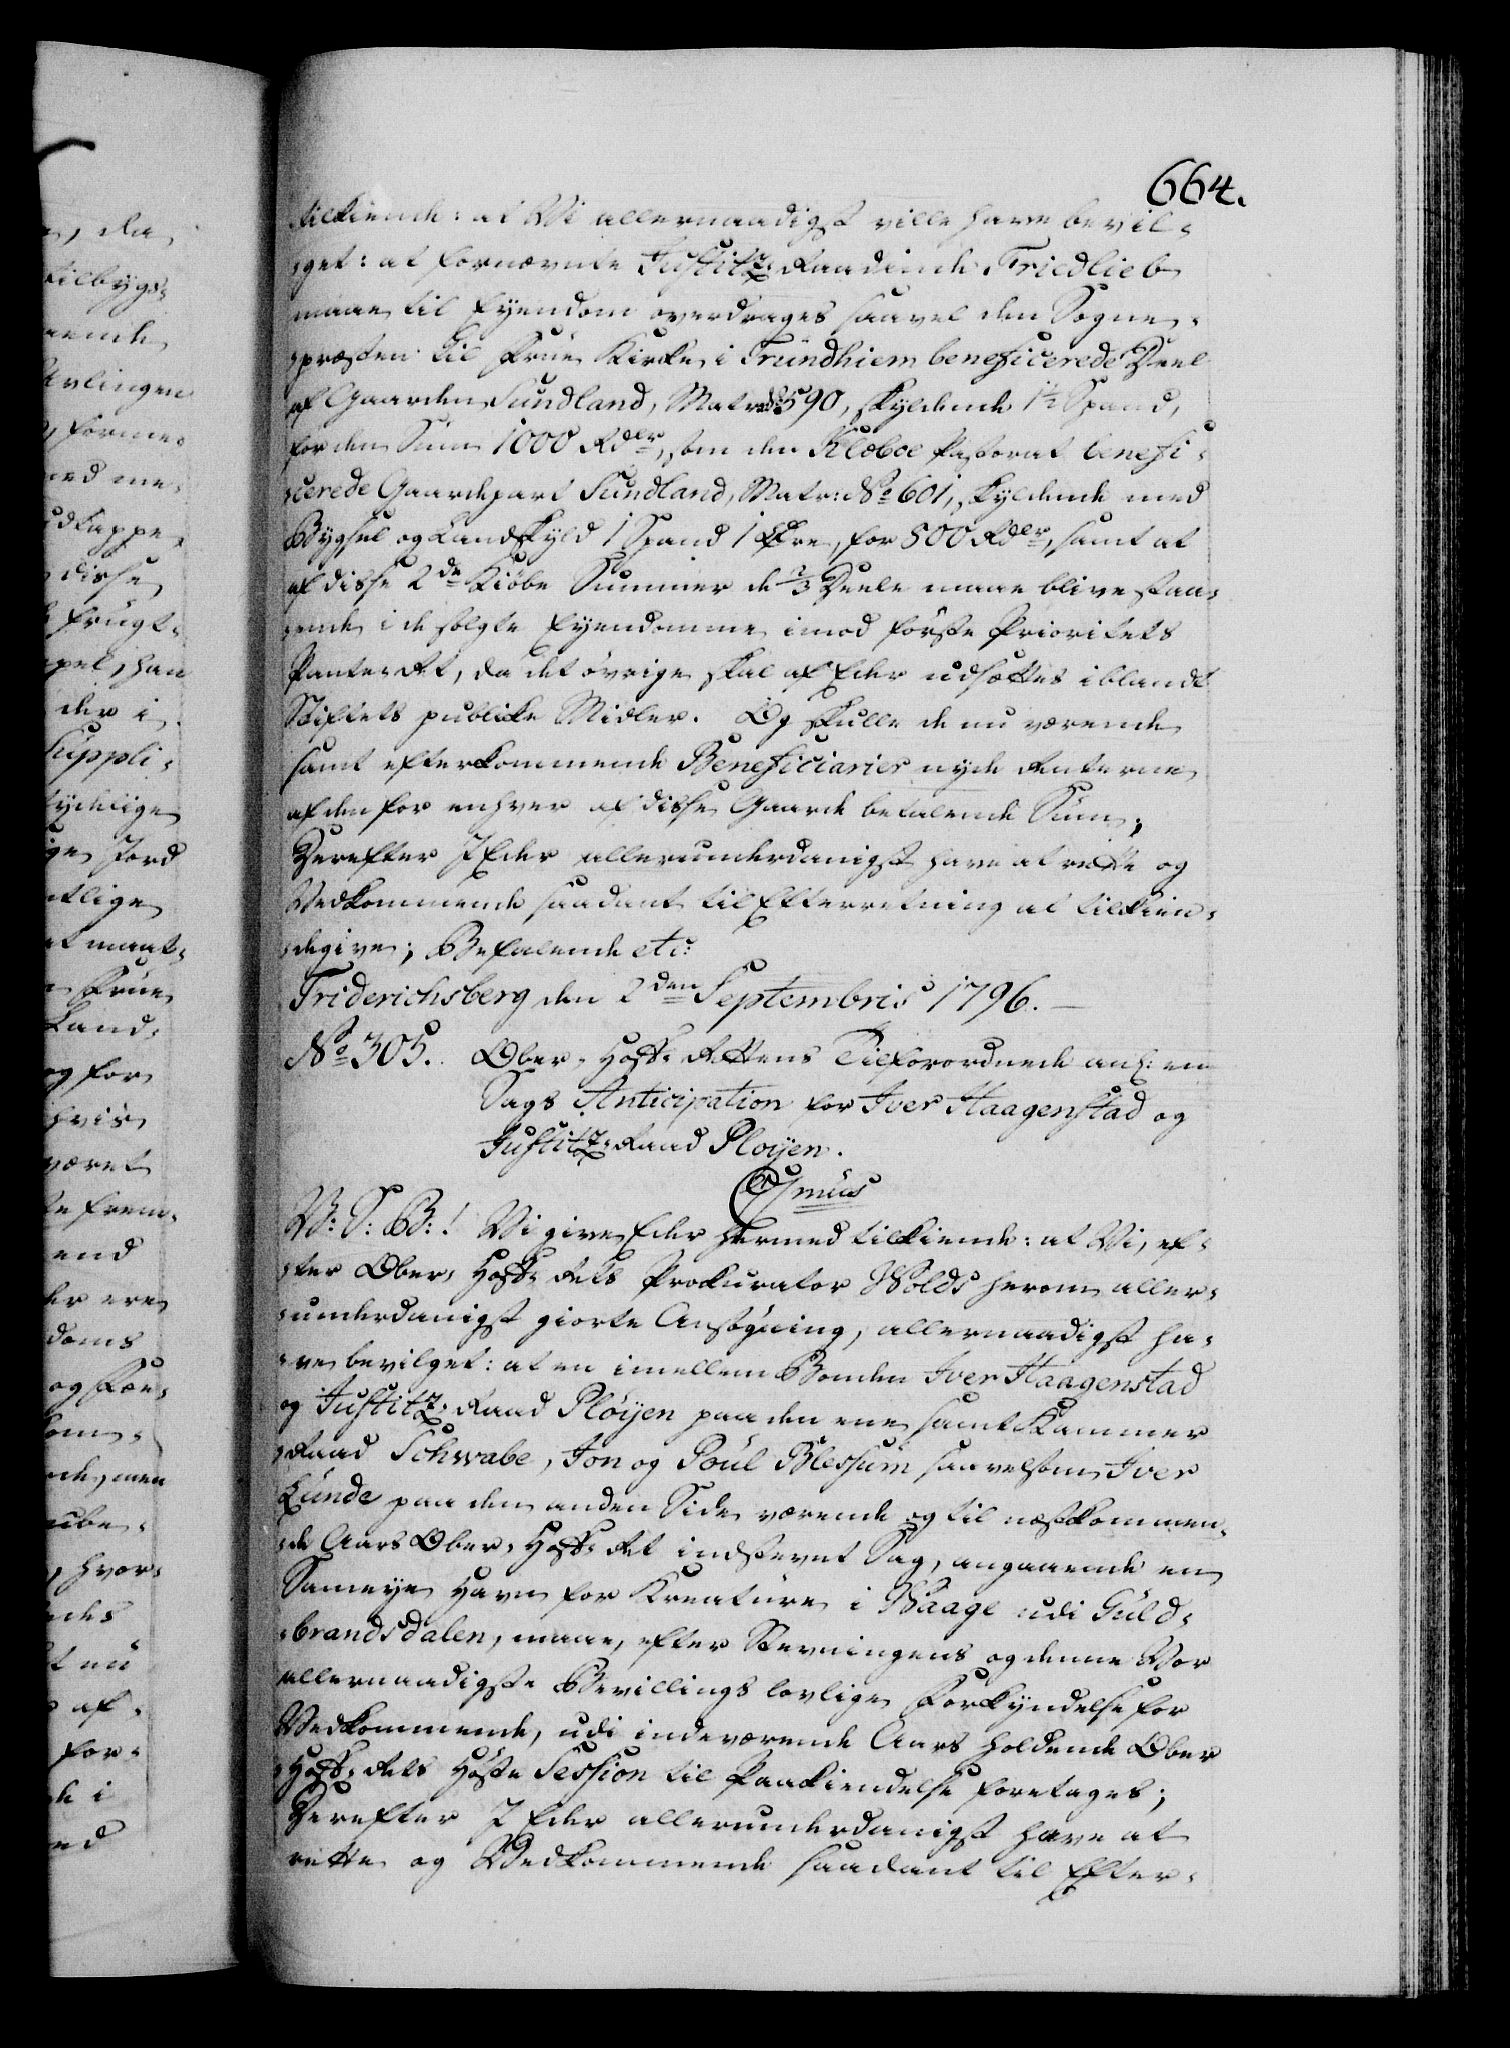 664.
tilkiende: at Vi allernaadigst ville have bevil-
-get: at fornævnte Justitz-Raadinde Friedlieb
maae til Eyendom overdrages saavel den Sogne-
-præsten til Frue Kirke i Trundhiem beneficerede Deel
af Gaarden Sundland, Matr: No 590, skyldende 1½ Spand,
for den Sum 1000 Rdlr, som den Klæboe Pastorat benefi-
-cerede Gaardepart Sundland, Matr: No 601, skyldende med
Bygsel og Landskyld 1 Spand 1 Øre, for 500 Rdlr, samt at
af disse 2de Kiøbe Summer de 2/3 Deele maae blive staa-
-ende i de solgte Eyendomme imod første Prioritets
Pante-Ret, da det øvrige skal af Eder udsættes iblandt
Stiftets publicke Midler. Og skulle de nu værende
samt efterkommende Beneficiarier nyde Renterne
af den for enhver af disse Gaarde betalende Sum;
Derefter I Eder allerunderdanigst have at rette og
Vedkommende saadant til Efterretning at tilkien-
-degive; Befalende etc:
Friderichsberg den 2den Septembris 1796.
No 305. Ober-Hoff-Rettens Tilforordnede anl: en
Sags Anticipation for Iver Haagenstad og
Justitz-Raad Ployen.
V: S: B:! Vi give Eder hermed tilkiende: at Vi, ef-
-ter Ober-Hoff-Rets Prokurator Wolds herom aller-
-underdanigst giorte Ansøgning, allernaadigst ha-
-ve bevilget: at en imellem Bonden Iver Haagenstad
og Justitz-Raad Pløyen paa den ene samt Kammer
-Raad Schwabe, Jon og Poul Blessum saavelsom Iver
Lunde paa den anden Side værende og til næstkommen-
-de Aars Ober-Hoff-Ret indstevnet Sag, angaaende en
Sameye Havn for Kreature i Waage udi Guld-
-brandsdalen, maae, efter Stevningens og denne Vor
allernaadigste Bevillings lovlige Forkyndelse for
Vedkommende, udi indeværende Aars holdende Ober
-Hoff-Rets Høste Session til Paakiendelse foretages;
Derefter I Eder allerunderdanigst have at
rette og Vedkommende saadant til Efter-